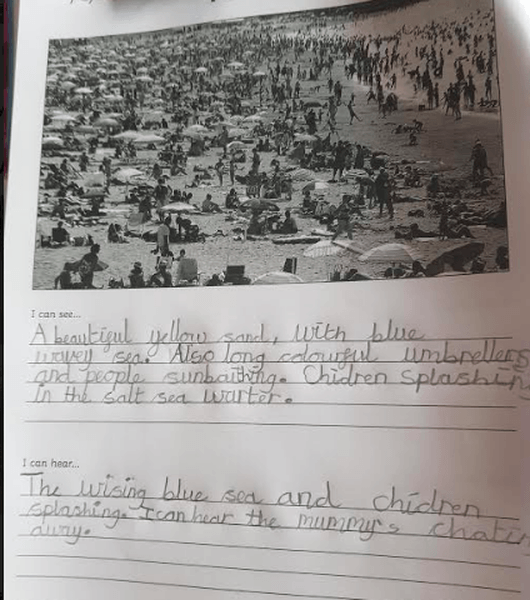 I can see...
A beautiful yellow sand, with blue
wavey sea. Also long colourful umbrellers
and people sunbaithing. Chidren splashing
in the salt sea warter.
I can hear...
The wising blue sea and chidren
splashing. I can hear the mummy's chatin
away.